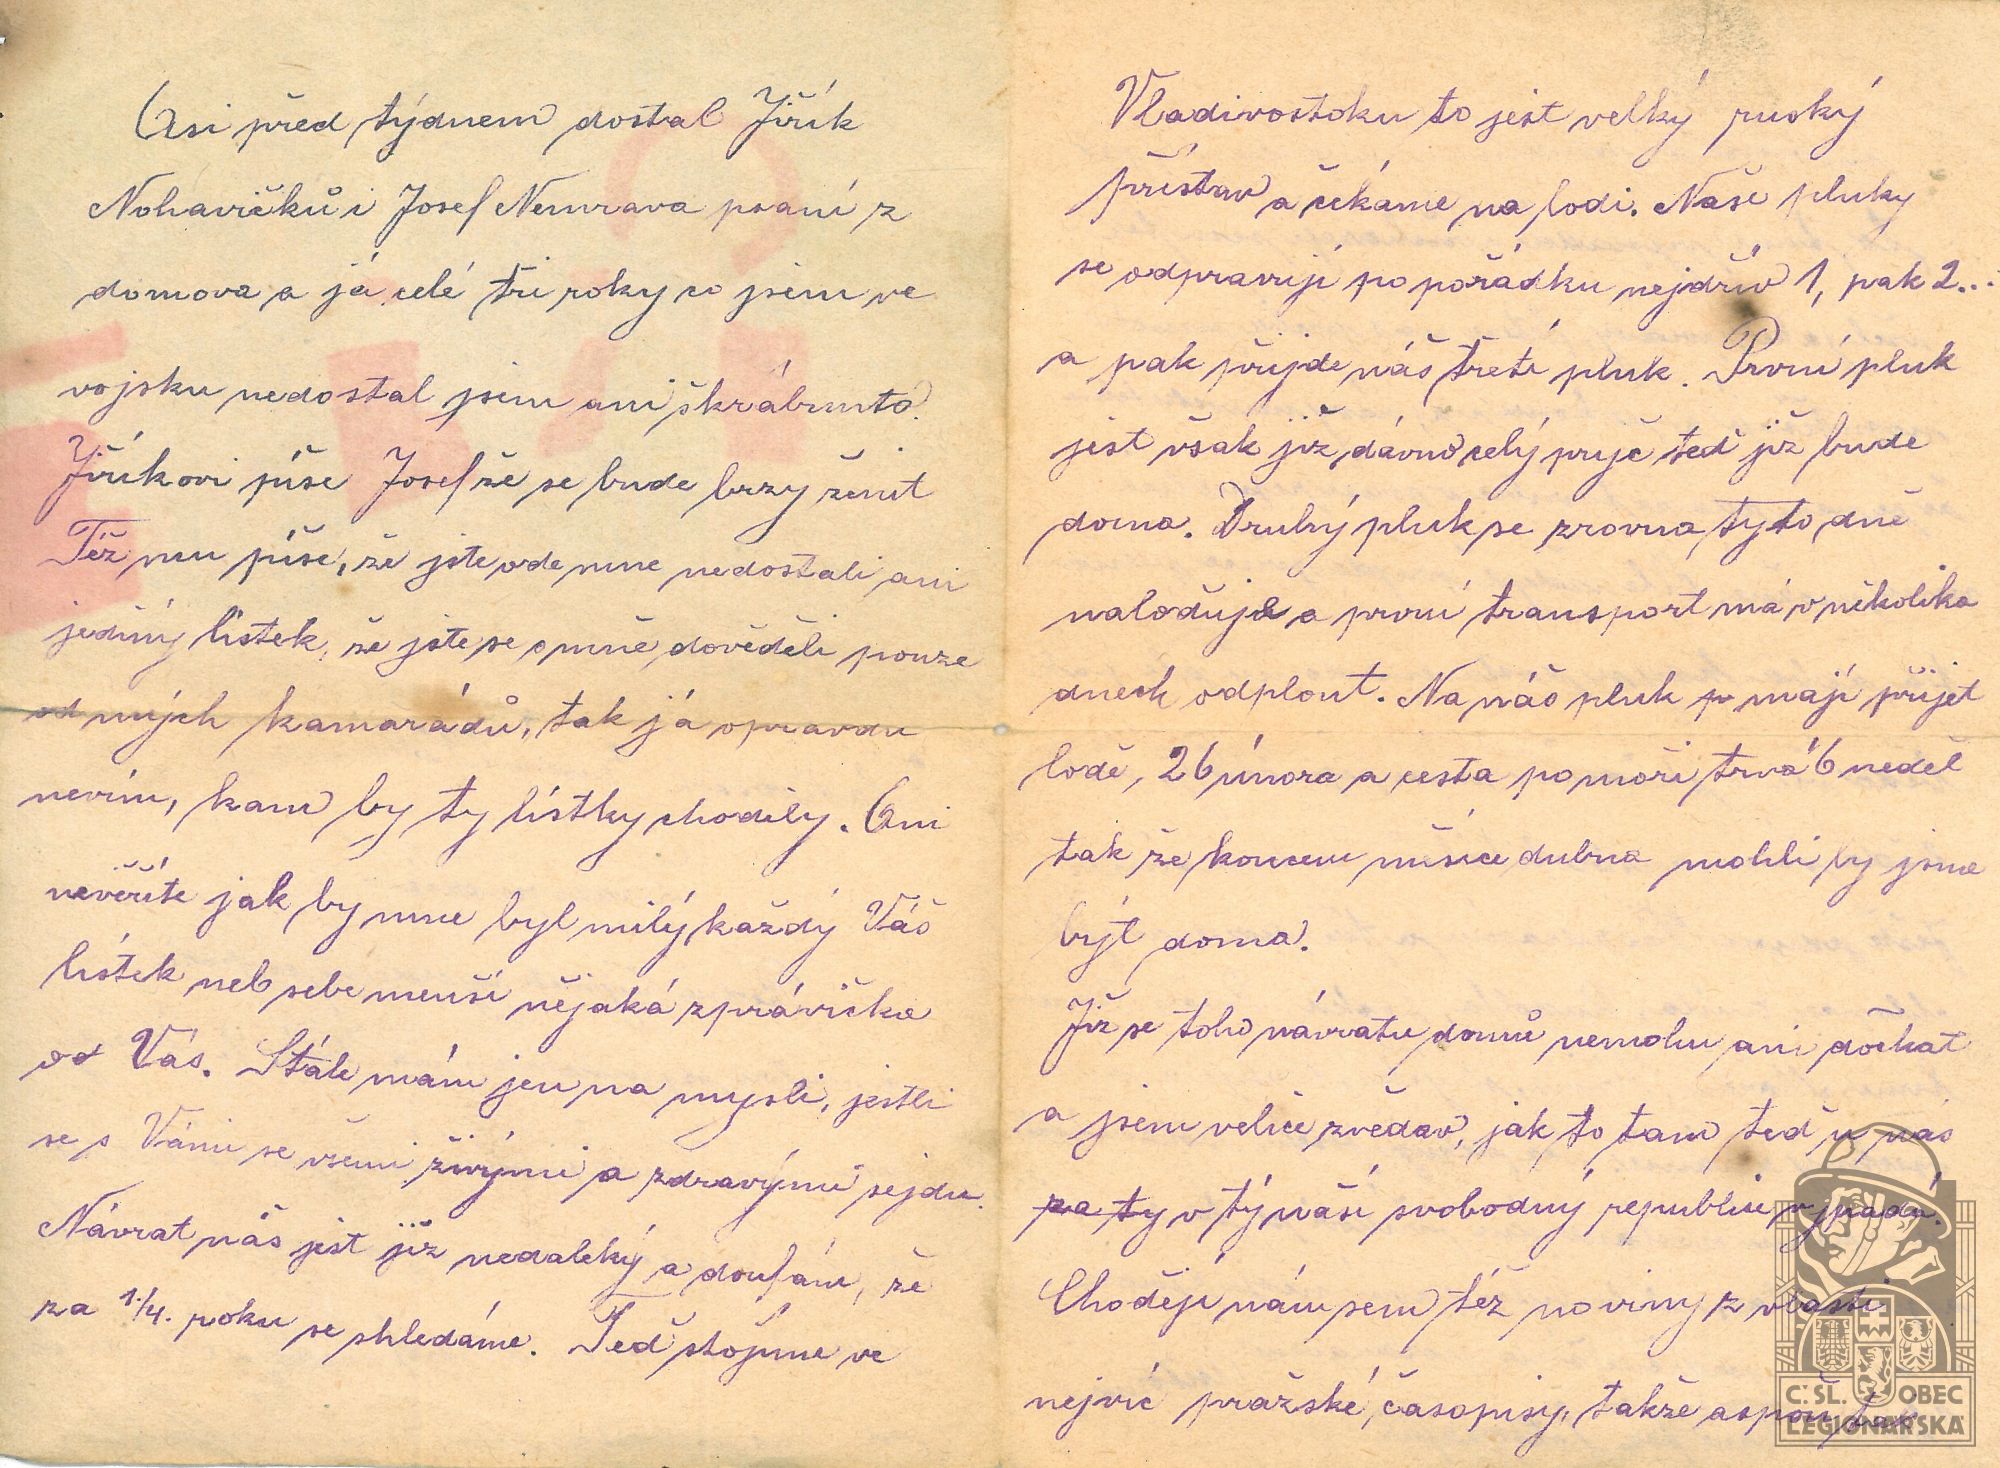 Asi před týdnem dostal Jiřík
Nohavičků i Josef Nemrava psaní z
domova a já celé tři roky co jsem ve
vojsku nedostal jsem ani škrábnutó.
Jiříkovi píše Josef že se bude brzy ženit
Též mu píše, že jste ode mne nedostali ani
jediný lístek, že jste se o mně dověděli pouze
od mých kamarádů, tak já opravdu
nevím, kam by ty lístky chodily. Ani
nevěříte jak by mne byl milý každý Váš
lístek neb sebe menší nějaká zprávička
od Vás. Stále mám jen na mysli, jestli
se s Vámi se všemi živými a zdravými sejdu.
Návrat náš jest již nedaleký a doufám, že
za 1/4. roku se shledáme. Teď stojíme ve
Vladivostoku to jest velký ruský
přístav a čekáme na lodi. Naše pluky
se odpravují po pořádku nejdřív 1, pak 2...
a pak přijde náš třetí pluk. První pluk
jest však již dávno celý pryč teď již bude
doma. Druhý pluk se zrovna tyto dně
naloďuje a první transport má v několika
dnech odplout. Na náš pluk mají přijet
lodě, 26 února a cesta po moři trvá 6 neděl
tak že koncem měsíce dubna mohli by jsme
být doma.
Již se toho návratu domů nemohu ani dočkat
a jsem velice zvědav, jak to tam teď u nás
za ty v tý naší svobodný republice vypadá.
Chodějí nám sem též noviny z vlasti
nejvíc pražské, časopisy, takže aspoň
Č. SL. OBEC
LEGIONÁŘSKÁ